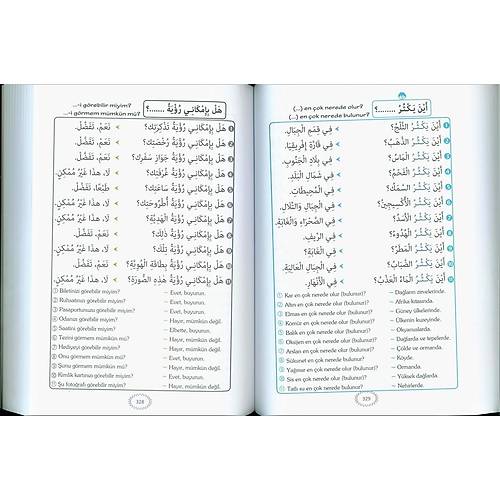 ...-i görebilir miyim? هَلْ بِإِمْكَانِي رُؤْيَةُ .......؟
...-i görmem mümkün mü?
1 هَلْ بِإِمْكَانِي رُؤْيَةُ تَذْكِرَتِك؟ نَعَمْ، تَفَضَّلْ.
2 هَلْ بِإِمْكَانِي رُؤْيَةُ رُخْصَتِك؟ نَعَمْ، تَفَضَّلْ.
3 هَلْ بِإِمْكَانِي رُؤْيَةُ جَوَازِ سَفَرِك؟ نَعَمْ، تَفَضَّلْ.
4 هَلْ بِإِمْكَانِي رُؤْيَةُ غُرْفَتِك؟ لَا، هذَا غَيْرُ مُمْكِنٍ.
5 هَلْ بِإِمْكَانِي رُؤْيَةُ سَاعَتِك؟ طَبْعًا، تَفَضَّلْ.
6 هَلْ بِإِمْكَانِي رُؤْيَةُ أُطْرُوحَتِك؟ لَا، هذَا غَيْرُ مُمْكِنٍ.
7 هَلْ بِإِمْكَانِي رُؤْيَةُ الْهَدِيَّةِ؟ لَا، هذَا غَيْرُ مُمْكِنٍ.
8 هَلْ بِإِمْكَانِي رُؤْيَةُ ذلِكَ؟ نَعَمْ، تَفَضَّلْ.
9 هَلْ بِإِمْكَانِي رُؤْيَةُ تِلْكَ؟ لَا، هذَا غَيْرُ مُمْكِنٍ.
10 هَلْ بِإِمْكَانِي رُؤْيَةُ بِطَاقَةِ الْهُوِيَّةِ؟ نَعَمْ، تَفَضَّلْ.
11 هَلْ بِإِمْكَانِي رُؤْيَةُ هذِهِ الصُّورَةِ؟ لَا، هذَا غَيْرُ مُمْكِنٍ.
1 Biletinizi görebilir miyim? – Evet, buyurun.
2 Ruhsatınızı görebilir miyim? – Evet, buyurun.
3 Pasaportunuzu görebilir miyim? – Evet, buyurun.
4 Odanızı görebilir miyim? – Hayır, mümkün değil.
5 Saatini görebilir miyim? – Elbette, buyurun.
6 Tezini görmem mümkün mü? – Hayır, mümkün değil.
7 Hediyeyi görebilir miyim? – Hayır, mümkün değil.
8 Onu görmem mümkün mü? – Evet, buyurun.
9 Şunu görmem mümkün mü? – Hayır, mümkün değil.
10 Kimlik kartınızı görebilir miyim? – Evet, buyurun.
11 Şu fotoğrafı görebilir miyim? – Hayır, mümkün değil.
328
(...) en çok nerede olur? أَيْنَ يَكْثُرُ .......؟
(...) en çok nerede bulunur?
1 أَيْنَ يَكْثُرُ الثَّلْجُ؟ فِي قِمَمِ الْجِبَالِ.
2 أَيْنَ يَكْثُرُ الذَّهَبُ؟ فِي قَارَّةِ إِفْرِيقِيَا.
3 أَيْنَ يَكْثُرُ الْمَاسُ؟ فِي بِلَادِ الْجَنُوبِ.
4 أَيْنَ يَكْثُرُ الْفَحْمُ؟ فِي شَمَالِ الْبَلَدِ.
5 أَيْنَ يَكْثُرُ السَّمَكُ؟ فِي الْمُحِيطَاتِ.
6 أَيْنَ يَكْثُرُ الْأُكْسِجِينُ؟ فِي الْجِبَالِ وَالتِّلَالِ.
7 أَيْنَ يَكْثُرُ الْأَسَدُ؟ فِي الصَّحْرَاءِ وَالْغَابَةِ.
8 أَيْنَ يَكْثُرُ الْهُدُوءُ؟ فِي الرِّيفِ.
9 أَيْنَ يَكْثُرُ الْمَطَرُ؟ فِي الْغَابَةِ؟
10 أَيْنَ يَكْثُرُ الضَّبَابُ؟ فِي الْجِبَالِ الْعَالِيَةِ.
11 أَيْنَ يَكْثُرُ الْمَاءُ الْعَذْبُ؟ فِي الْأَنْهَارِ.
1 Kar en çok nerede olur (bulunur)? – Dağların zirvelerinde.
2 Altın en çok nerede olur (bulunur)? – Afrika kıtasında.
3 Elmas en çok nerede olur (bulunur)? – Güney ülkelerinde.
4 Kömür en çok nerede olur (bulunur)? – Ülkenin kuzeyinde.
5 Balık en çok nerede olur (bulunur)? – Okyanuslarda.
6 Oksijen en çok nerede olur (bulunur)? – Dağlarda ve tepelerde.
7 Arslan en çok nerede olur (bulunur)? – Çölde ve ormanda.
8 Sükunet en çok nerede olur (bulunur)? – Köyde.
9 Yağmur en çok nerede olur (bulunur)? – Ormanda.
10 Sis en çok nerede olur (bulunur)? – Yüksek dağlarda.
11 Tatlı su en çok nerede olur (bulunur)? – Nehirlerde.
329